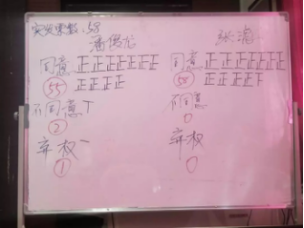 实发票数:58
同意 正正正正正正正
正正正正
55
不同意 丅
2
弃权 一
1
张涛
同意 正正正正正正正
正正正正下
58
不同意
0
弃权
0